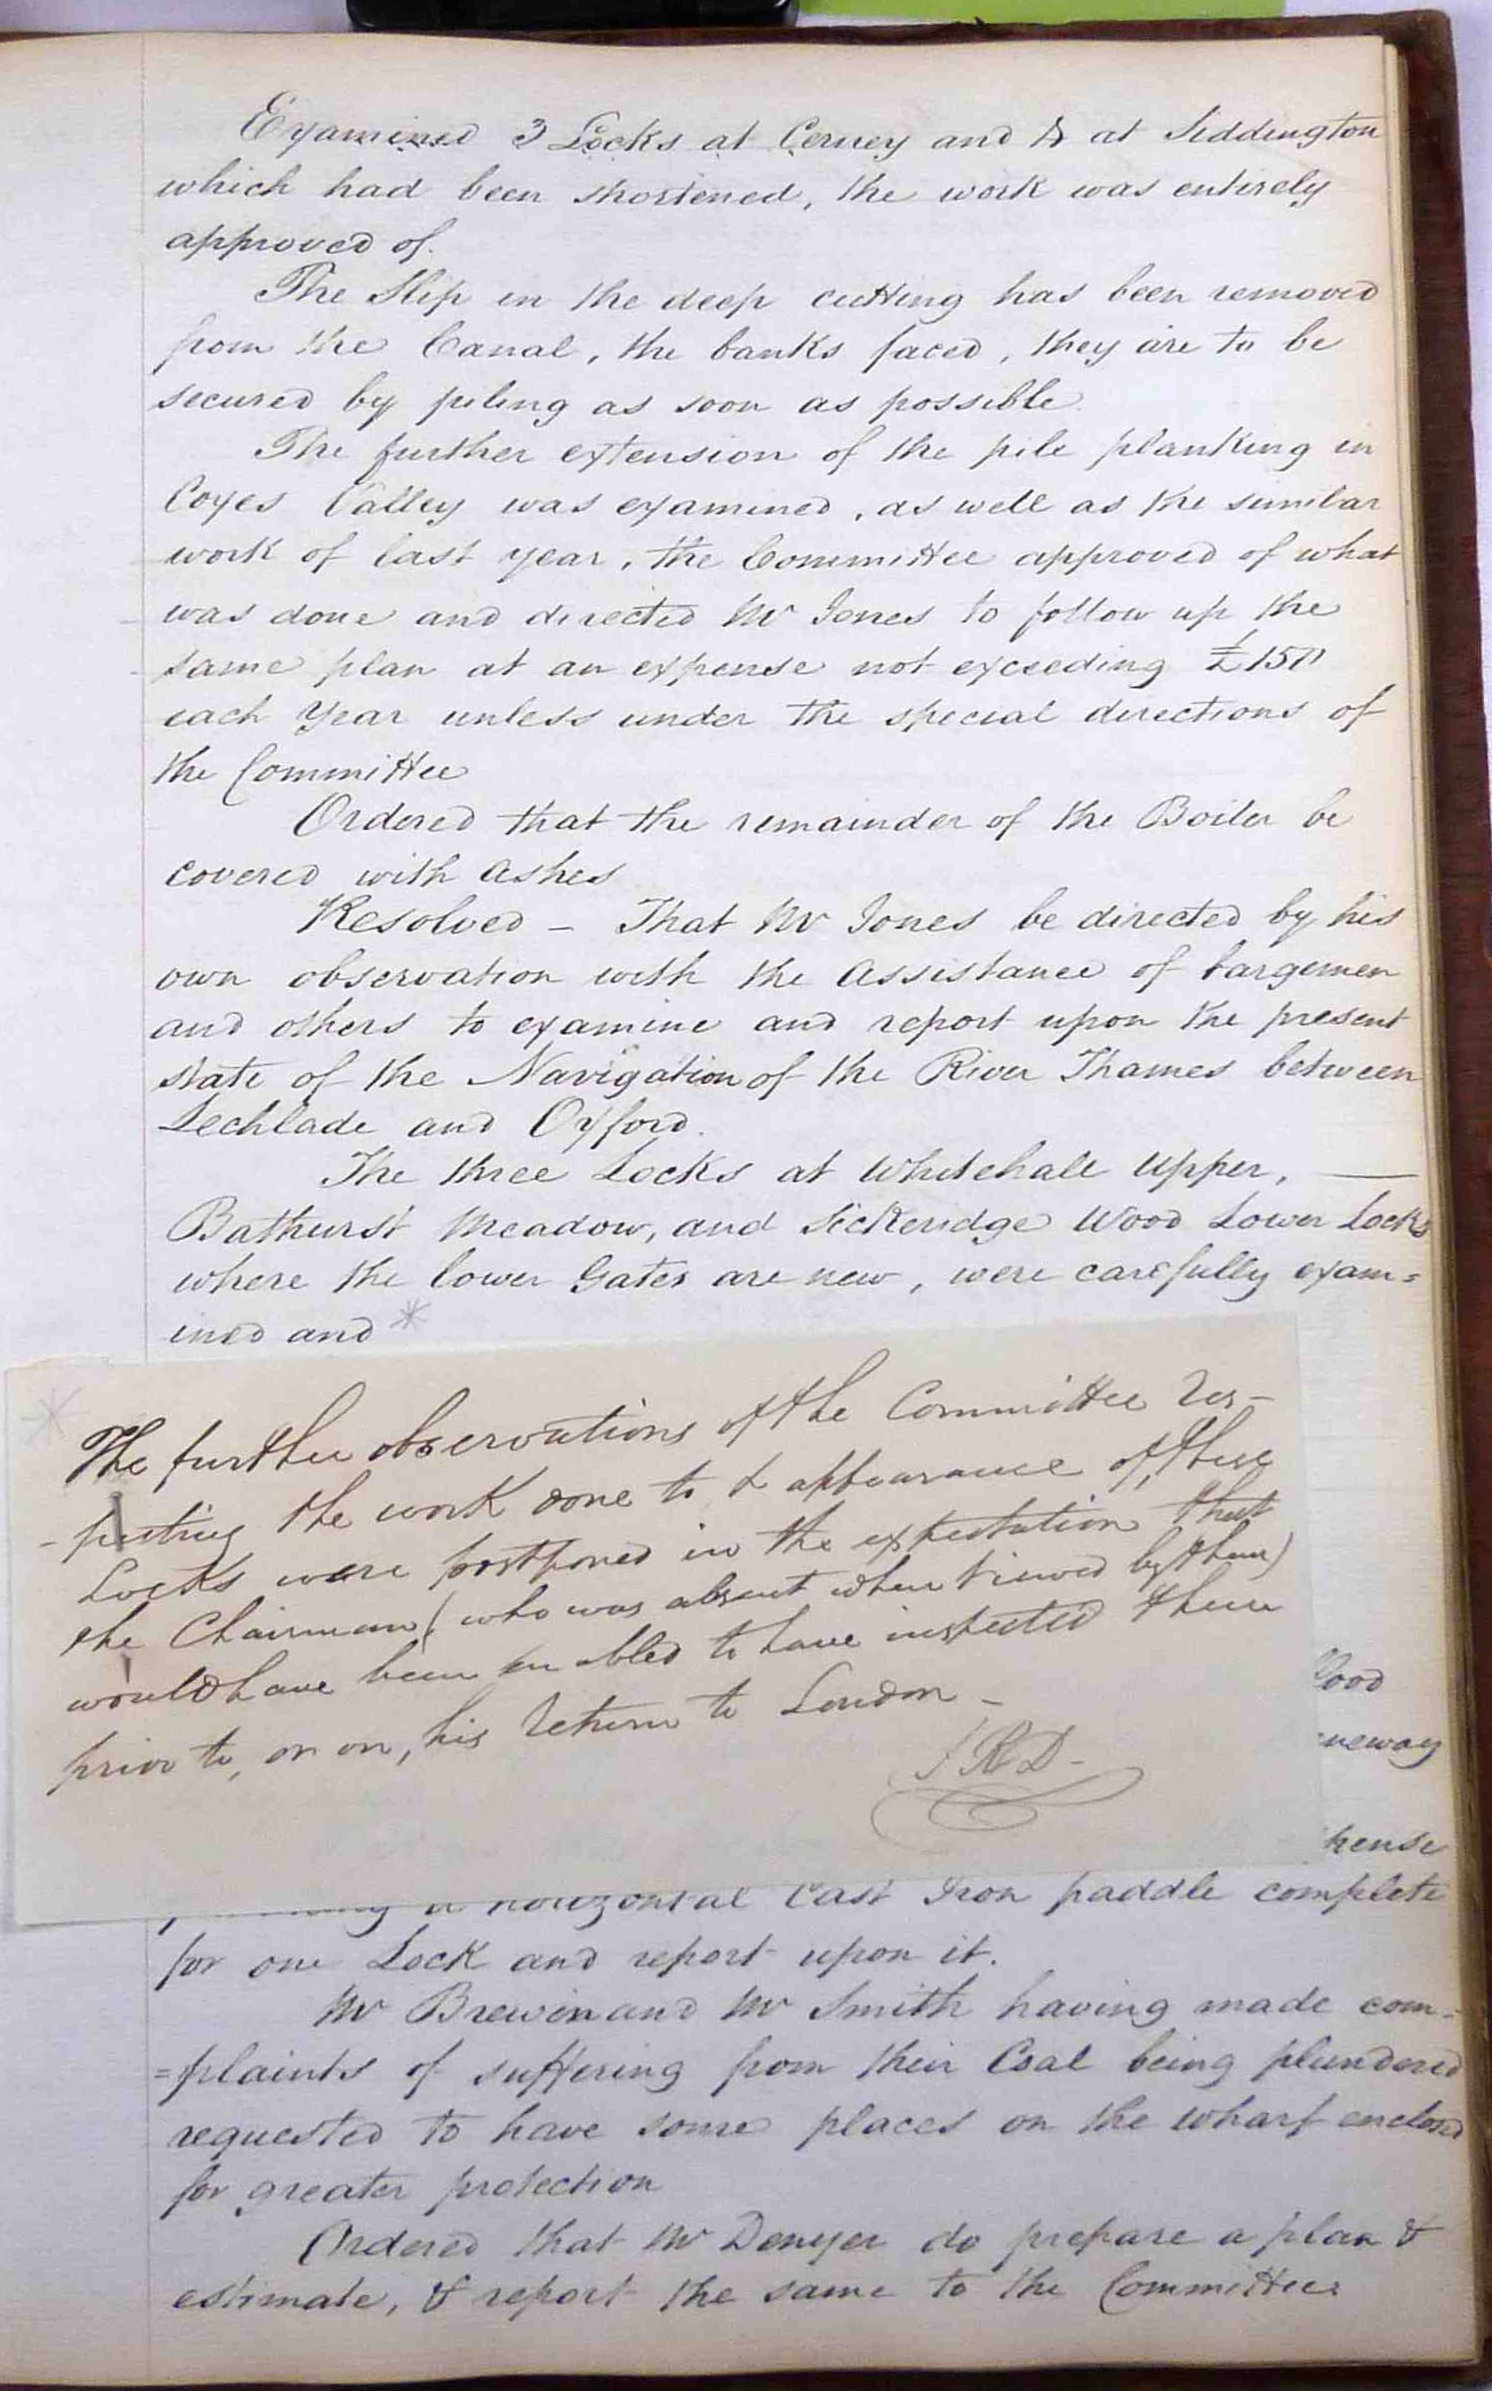 Examined 3 Locks at Cerney and 4 at Siddington
which had been shortened, the work was entirely
approved of.
The Slip in the deep cutting has been removed
from the Canal, the banks faced, they are to be
secured by piling as soon as possible.
The further extension of the pile planking in
Coyes Valley was examined, as well as the similar
work of last year, the Committee approved of what
was done and directed Mr Jones to follow up the
same plan at an expense not exceeding £150
each Year unless under the special directions of
the Committee
Ordered that the remainder of the Boiler be
covered with Ashes
Resolved – That Mr Jones be directed by his
own observation with the Assistance of bargemen
and others to examine and report upon the present
state of the Navigation of the River Thames between
Lechlade and Oxford.
The three Locks at Whitehall Upper, —
Bathurst Meadow, and Sickeridge Wood Lower Locks
where the lower Gates are new, were carefully exam=
ined and *
* The further observations of the Committee res-
-pecting the work done to & appearance of, these
Locks were postponed in the expectation that
the Chairman (who was absent when viewed by them)
would have been enabled to have inspected them
prior to, or on, his return to London –
JRD-
Wood
neway
pense
a horizontal Cast Iron paddle complete
for one Lock and report upon it.
Mr Brewin and Mr Smith having made com-
=plaints of suffering from their Coal being plundered
requested to have some places on the wharf enclosed
for greater protection
Ordered that Mr Denyer do prepare a plan &
estimate, & report the same to the Committee